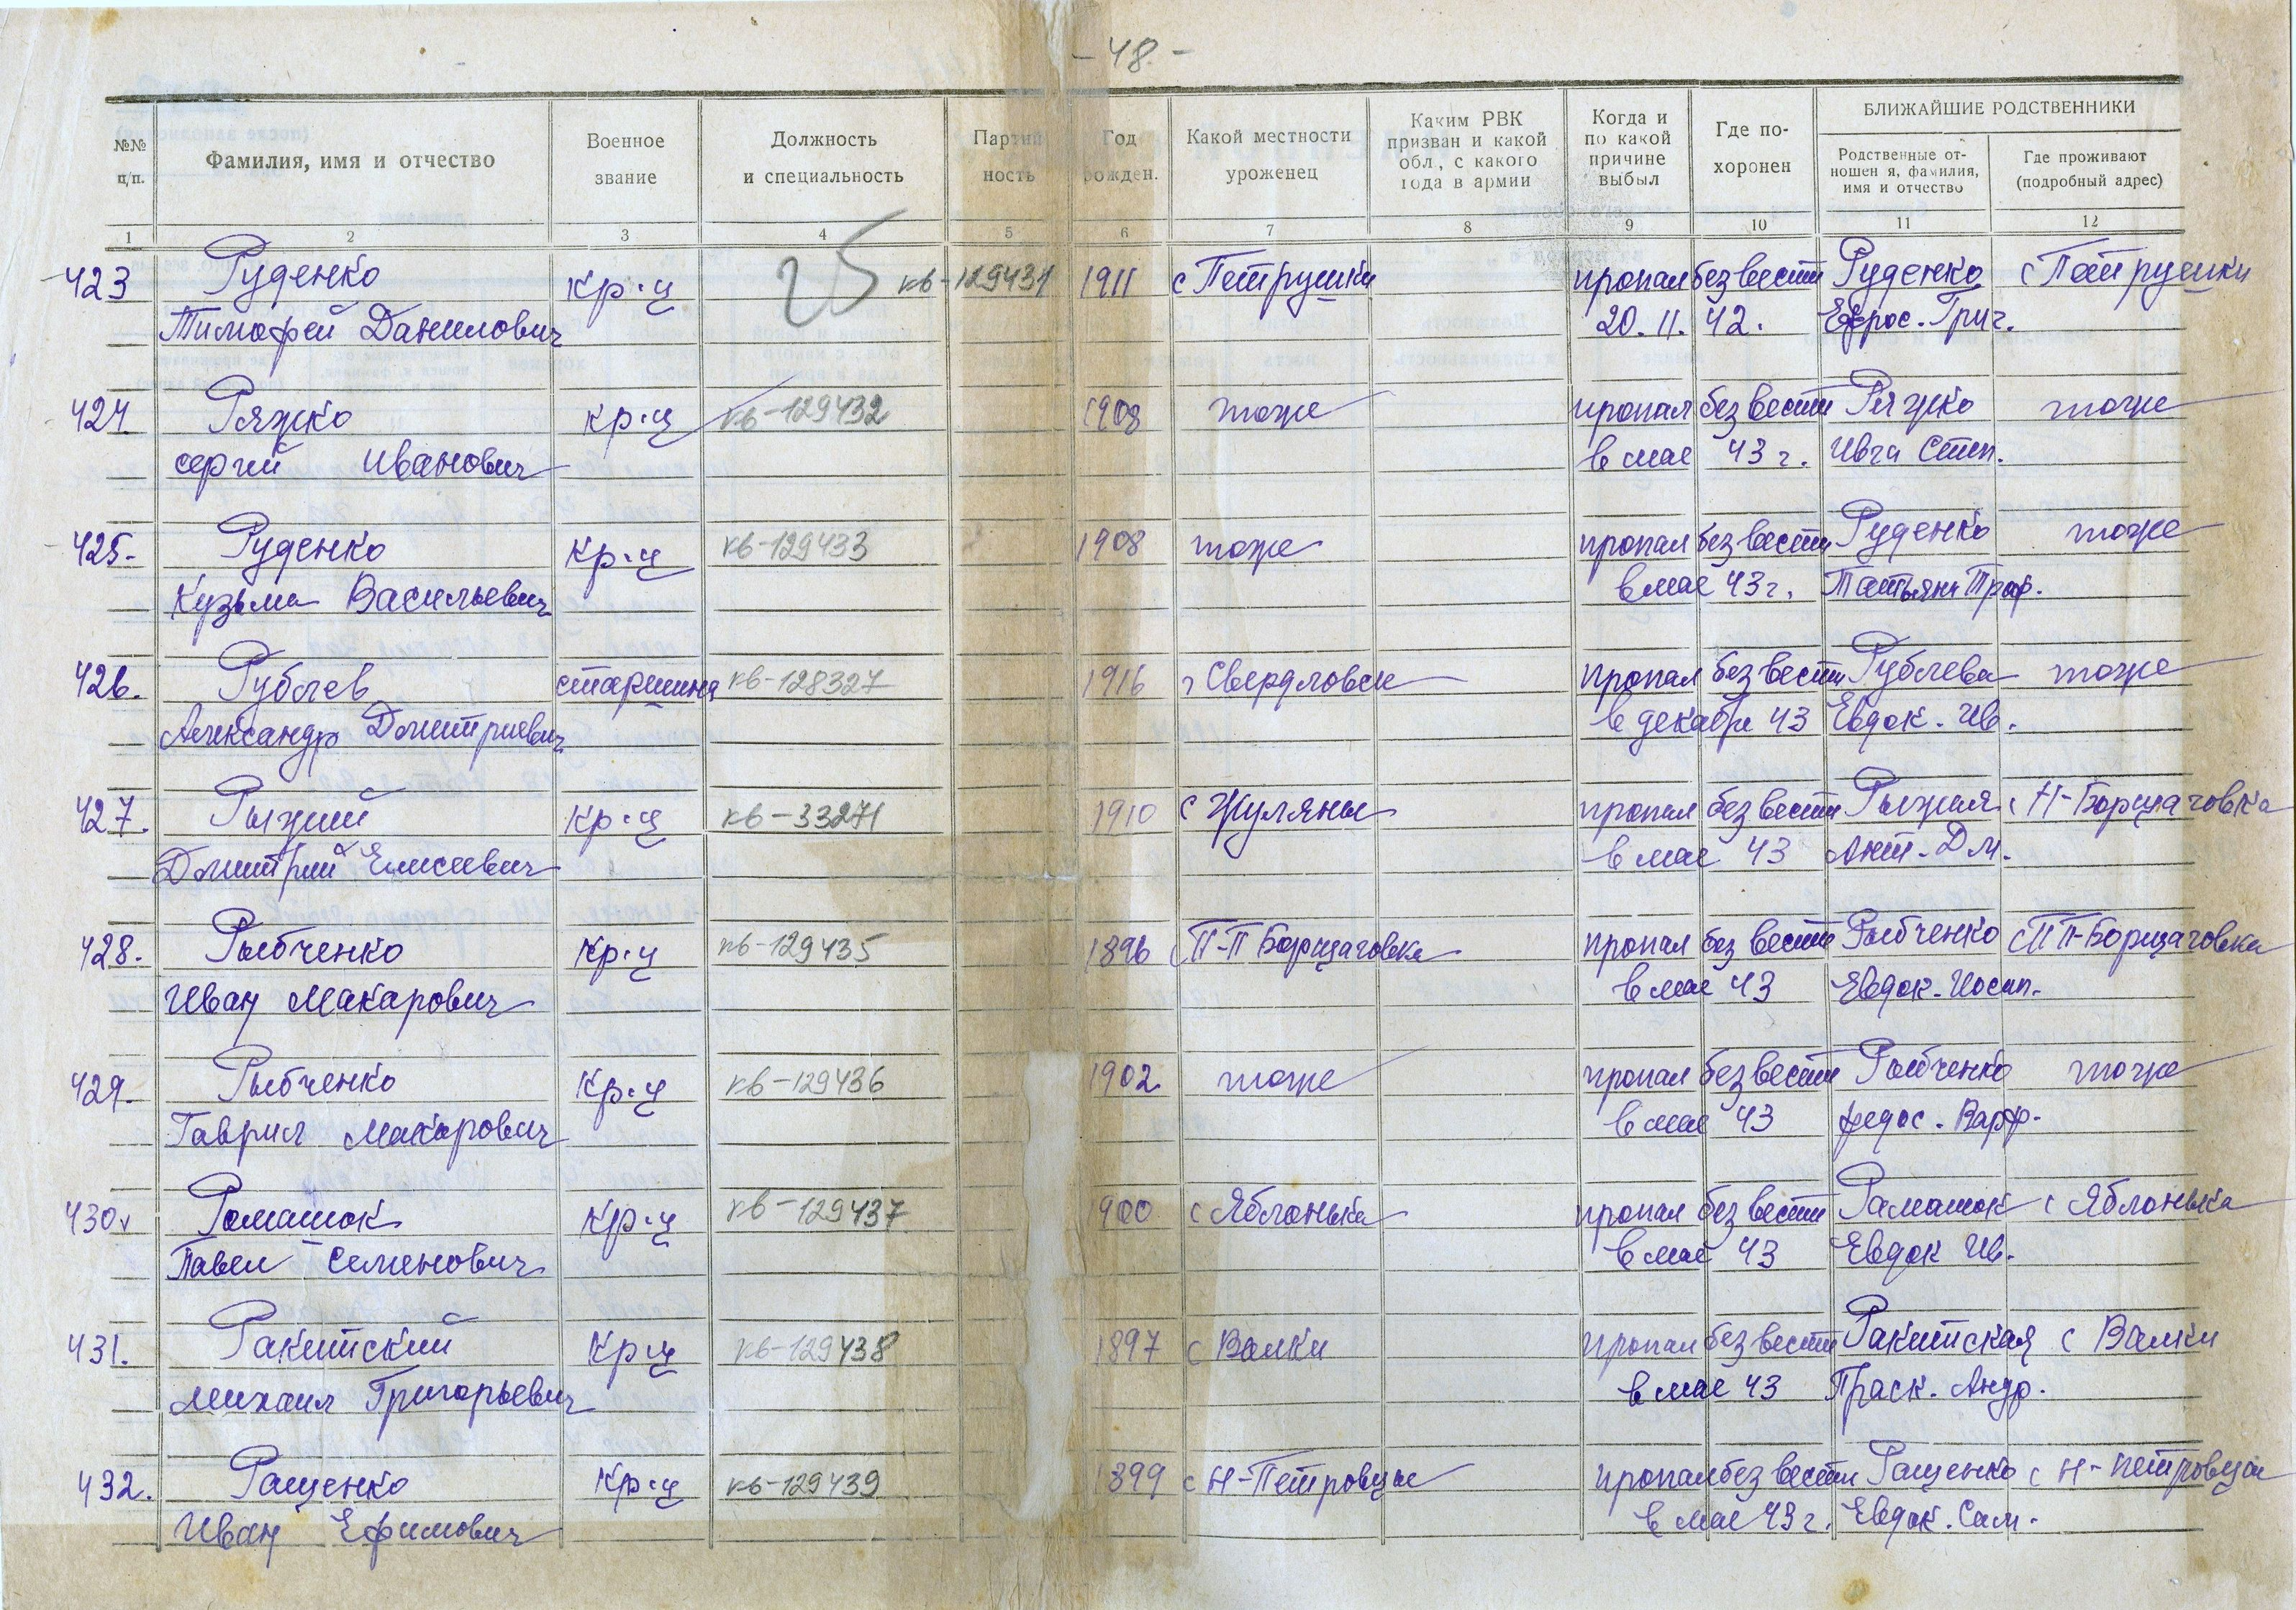 - 48. -
№№ п/п.
Фамилия, имя и отчество
Военное звание
Должность и специальность
Партий ность
Год рожден.
Какой местности уроженец
Каким РВК призван и какой обл, с какого года в армии
Когда и по какой причине выбыл
Где по- хоронен
БЛИЖАЙШИЕ РОДСТВЕННИКИ
Родственные от- ношен я, фамилия, имя и отчество
Где проживают (подробный адрес)
1 2 3 4 5 6 7 8 9 10 11 12
25
423 Руденко Кр-ц кв-129431 1911 с Петрушки пропал без вести Руденко с Петрушки
Тимофей Данилович 20. 11. 42. Ефрос. Григ.
424 Ряжко кр-ц кв-129432 1908 тоже пропал без вести Ряжко тоже
Сергий Иванович в мае 43 г. Ивга Степ.
425- Руденко Кр-ц кв-129433 1908 тоже пропал без вести Руденко тоже
Кузьма Васильевич в мае 43 г. Татьяна Троф.
426. Рублев старшина кв-128327 1916 г Свердловск пропал без вести Рублева тоже
Александр Дмитриевич в декабре 43 Евдок. Ив.
427. Рыжий Кр-ц кв-33271 1910 с Жуляны пропал без вести Рыжая с Н-Борщаговка
Дмитрий Елисеевич в мае 43 Ант. Дм.
428. Рыбченко Кр-ц кв-129435 1896 с П-П Борщаговка пропал без вести Рыбченко с П П-Борщаговка
Иван Макарович в мае 43 Евдок. Иосип.
429. Рыбченко Кр-ц кв-129436 1902 тоже пропал без вести Рыбченко тоже
Гаврил Макарович в мае 43 Федос. Варф.
430. Ромашок Кр-ц кв-129437 1900 с Яблонька пропал без вести Рамашок с Яблонька
Павел Семенович в мае 43 Евдок Ив.
431. Ракитский Кр-ц кв-129438 1897 с Валки пропал без вести Ракитская с Валки
Михаил Григорьевич в мае 43 Праск. Андр.
432. Ращенко Кр-ц кв-129439 1899 с Н-Петровцы пропал без вести Ращенко с Н-Петровцы
Иван Ефимович в мае 43 г. Евдок. Сам.